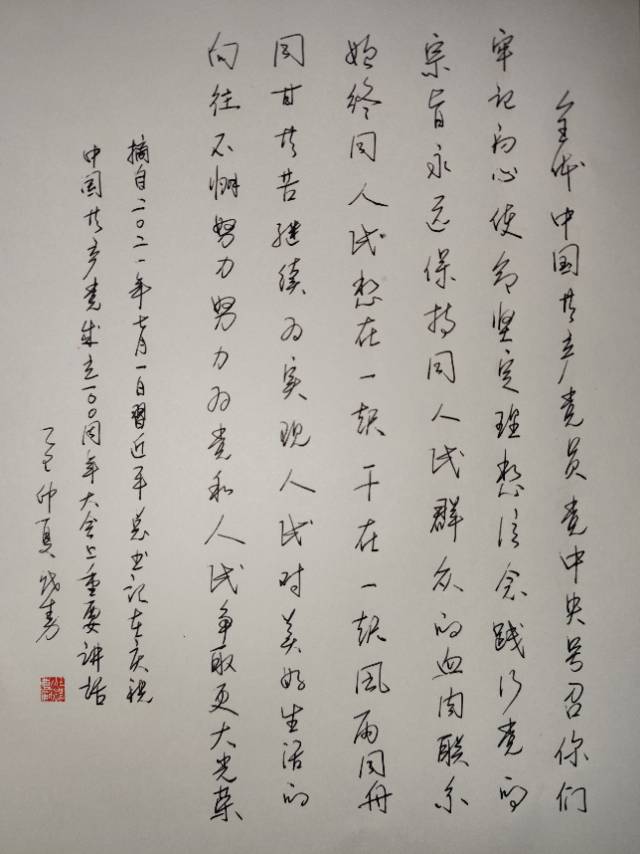 全体中国共产党员党中央号召你们
牢记初心使命坚定理想信念践行党的
宗旨永远保持同人民群众的血肉联系
始终同人民想在一起干在一起风雨同舟
同甘共苦继续为实现人民对美好生活的
向往不懈努力努力为党和人民争取更大光荣
摘自二〇二一年七月一日习近平总书记在庆祝
中国共产党成立一〇〇周年大会上重要讲话
仲夏